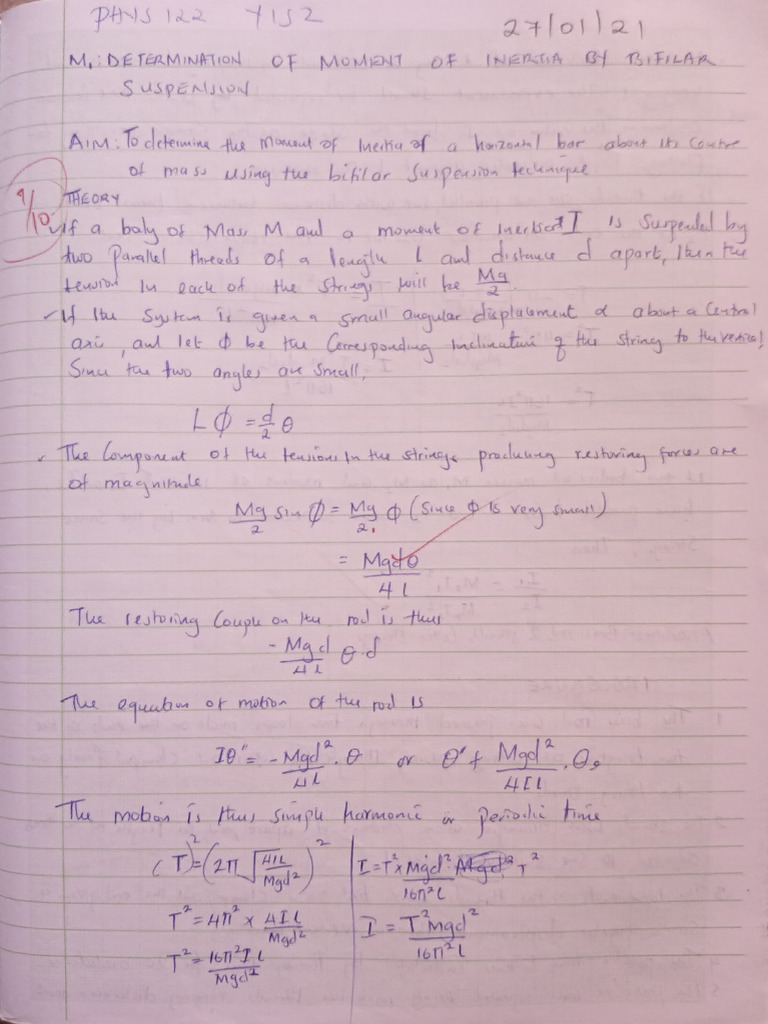 PHYS 122 Y1S2
27/01/21
M1: DETERMINATION OF MOMENT OF INERTIA BY BIFILAR
SUSPENSION
AIM: To determine the Moment of Inertia of a horizontal bar about its Centre
of mass using the bifilar Suspension technique
9/10
THEORY
If a body of Mass M and a moment of Inertia I is Suspended by
two Parallel threads of a length L and distance d apart, then the
tension in each of the Strings will be Mg/2.
✓ If the System is given a small angular displacement α about a Central
axis, and let Φ be the Corresponding Inclination of the string to the vertical,
Since the two angles are small,
LΦ = d/2 θ
The Component of the tensions in the strings producing restoring forces are
of magnitude
Mg/2 sin Φ = Mg/2 Φ (Since Φ is very small)
= Mgdθ/4L
The restoring Couple on the rod is thus
-Mgd/4L θ.d
The equation of motion of the rod is
Iθ'' = -Mgd²/4L . θ or θ'' + Mgd²/4IL . θ
The motion is thus simple harmonic in periodic time
(T)² = (2π√(4IL/Mgd²))²
T² = 4π² × 4IL/Mgd²
T² = 16π²IL/Mgd²
I = T² × Mgd²/16π²L T²
I = T²Mgd²/16π²L